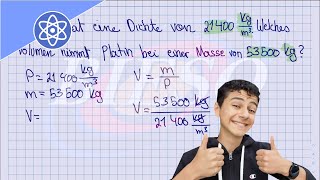 at eine Dichte von 21400 kg/m³. Welches
Volumen nimmt Platin bei einer Masse von 53500 kg?
P = 21400 kg/m³
V = m/P
m = 53500 kg
V =
V = 53500 kg / 21400 kg/m³